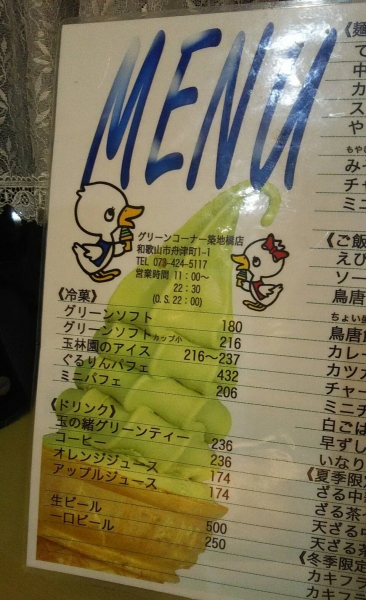 MENU
グリーンコーナー築地橋店
和歌山市舟津町1-1
TEL 073-424-5117
営業時間 11：00〜
22：30
(O.S. 22：00)
《冷菓》
グリーンソフト 180
グリーンソフトカップ小 216
玉林園のアイス 216〜237
ぐるりんパフェ 432
ミニパフェ 206
《ドリンク》
玉の緒グリーンティー 236
コーヒー 236
オレンジジュース 174
アップルジュース 174
生ビール 500
一口ビール 250
《麺
て
中
カ
ス
や
もやし
みそ
チャ
ミニ
《ご飯
えび
ソー
鳥唐
ちょい
鳥唐
カレー
カツカ
チャー
ミニチ
白ごは
早ずし
いなり
《夏季限
ざる中
ざる茶
天ざる中
天ざる茶
《冬季限定
カキフラ
カキフラ